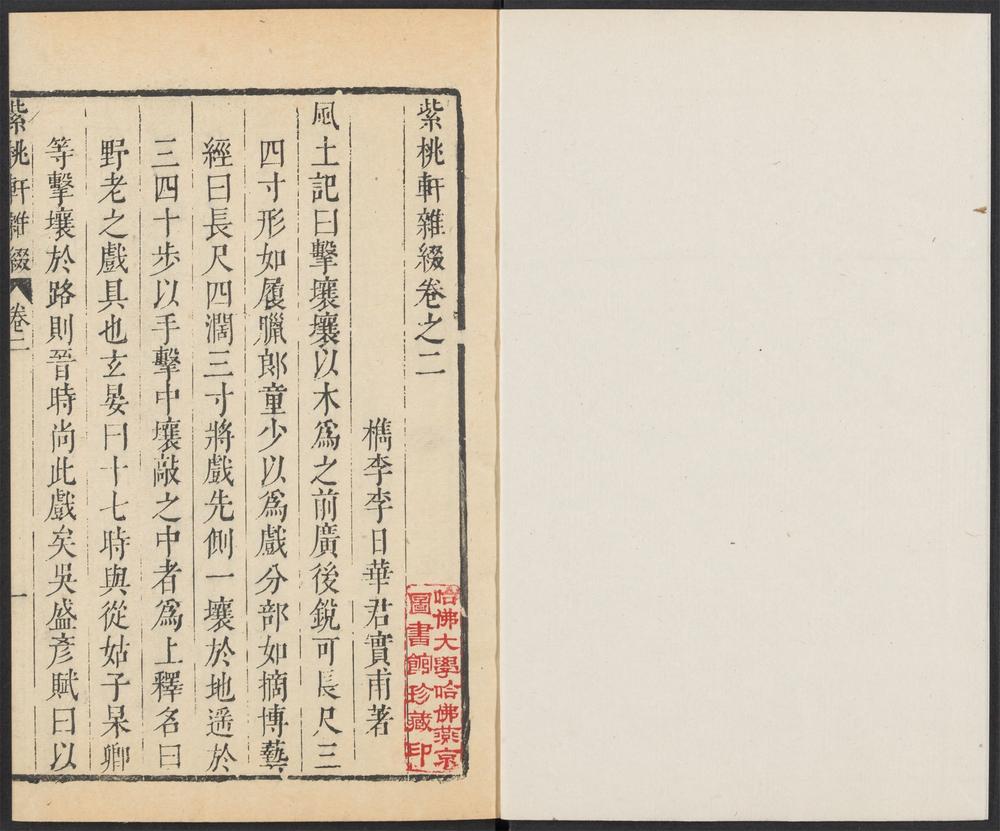 紫桃軒雜綴卷之二
檇李李日華君實甫著
風土記曰擊壤壤以木爲之前廣後銳可長尺三
四寸形如履臘郎童少以爲戲分部如摘博藝
經曰長尺四濶三寸將戲先側一壤於地遥於
三四十步以手擊中壤敲之中者爲上釋名曰
野老之戲具也玄晏曰十七時與從姑子杲卿
等擊壤於路則晉時尚此戲矣吳盛彥賦曰以
紫桃軒雜綴 卷二 一
哈佛大學哈佛燕京
圖書館珍藏印